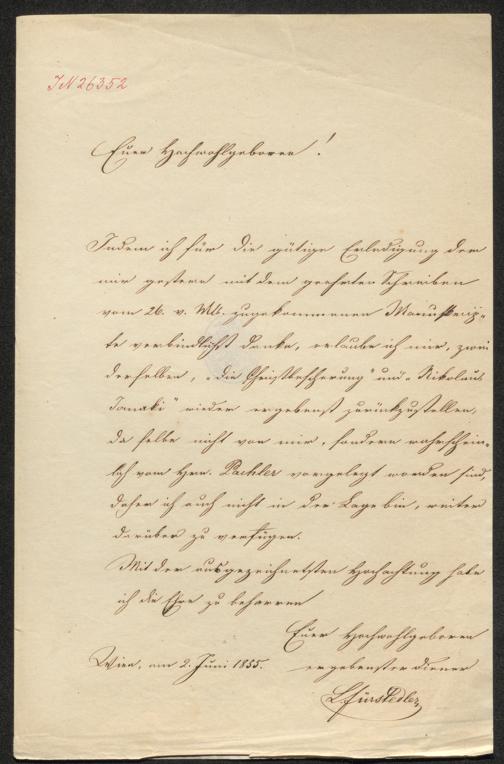 IN 26352
Euer Hochwohlgeboren!
Indem ich für die gütige Erledigung der
mir gestern mit dem geehrten Schreiben
vom 26. v. Mts. zugekommenen Manuskrip-
te verbindlichst danke, erlaube ich mir, zwei
derselben, „die Christbescherung" und „Nikolaus
Tomaki" wieder ergebenst zurückzustellen,
da selbe nicht von mir, sondern wahrschein-
lich vom Hrn. Pachler vorgelegt worden sind,
daher ich auch nicht in der Lage bin, weiter
darüber zu verfügen.
Mit der ausgezeichnetsten Hochachtung habe
ich die Ehre zu beharren
Euer Hochwohlgeboren
Wien, am 2. Juni 1855. ergebenster Diener
L. Fürstedler